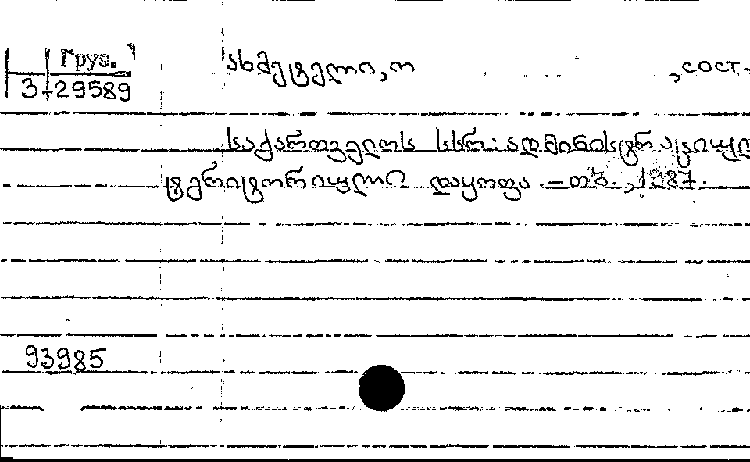 Груз.
3-29589
ახმეტელი, ო , сост.
საქართველოს სსრ: ადმინისტრაციულ
ტერიტორიული დაყოფა. – თბ., 1987.
93985